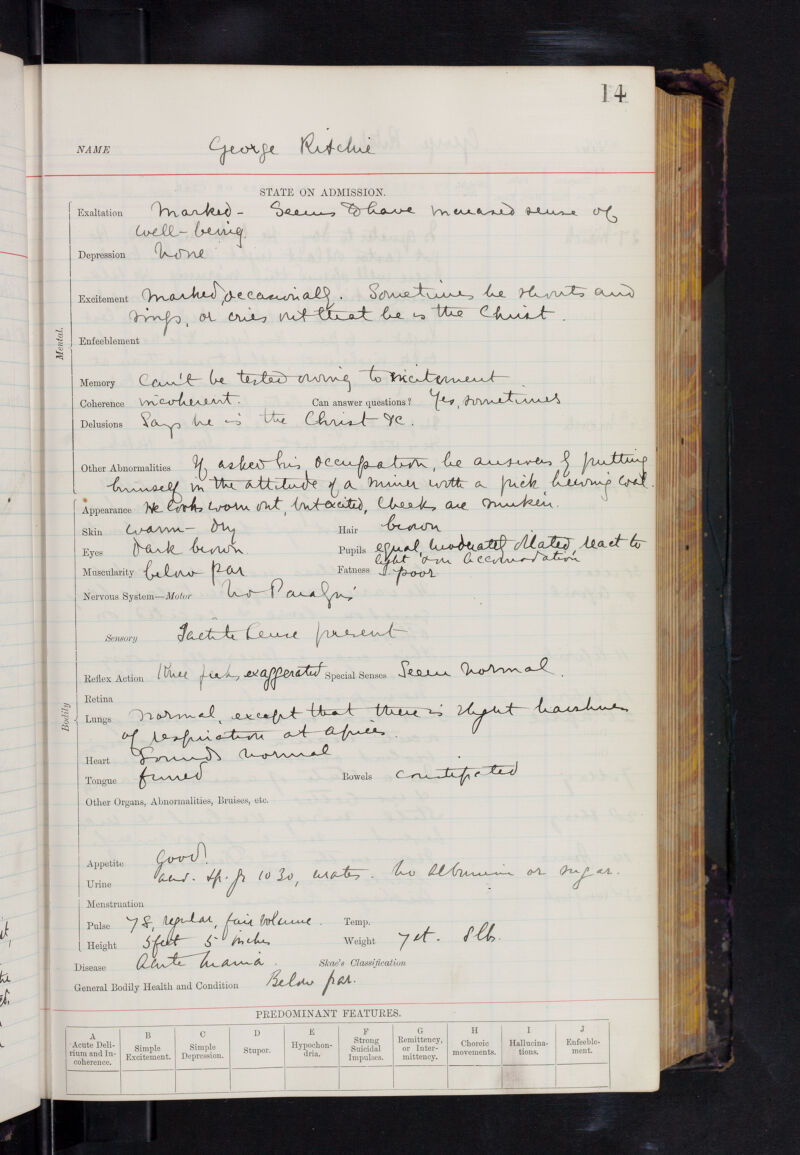 14
NAME George Ritchie
STATE ON ADMISSION.
Mental.
Exaltation Marked - Seems to have increased sense of
well-being.
Depression None
Excitement Marked, occasionally. Sometimes he shouts and
sings, or cries out that he is the Christ.
Enfeeblement
Memory Can't be tested owing to excitement
Coherence incoherent. Can answer questions? Yes, sometimes
Delusions Says he is the Christ &c.
Other Abnormalities If asked his occupation, he answers by putting
himself in the attitude of a miner with a pick hewing coal.
Bodily
Appearance He looks worn out, but excited, Cheeks are sunken.
Skin warm - dry Hair brown
Eyes Dark brown Pupils equal, moderately dilated, react to
light and accomodation
Muscularity below par Fatness poor
Nervous System—Motor No Paralysis
Sensory Tactile Sense present
Reflex Action Knee jerks exaggerated Special Senses Seem normal.
Retina
Lungs Normal, except that there is slight harshness
of respiration at apices.
Heart Sounds normal
Tongue furred Bowels constipated
Other Organs, Abnormalities, Bruises, etc.
Appetite Good.
Urine acid. Sp. gr 1030, urates. No albumin or sugar.
Menstruation
Pulse 78, regular, fair volume. Temp.
Height 5 feet 5 inches Weight 7 st. 8 lbs.
Disease Acute Mania. Skae's Classification
General Bodily Health and Condition Below par.
PREDOMINANT FEATURES.
A Acute Delirium and Incoherence.
B Simple Excitement.
C Simple Depression.
D Stupor.
E Hypochondria.
F Strong Suicidal Impulses.
G Remittency, or Intermittency.
H Choreic movements.
I Hallucinations.
J Enfeeblement.